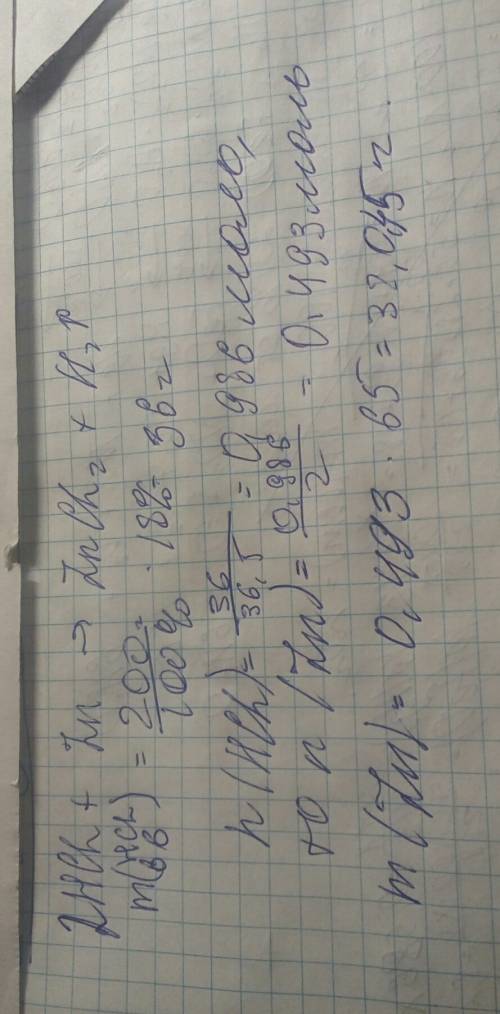 2HCl + Zn → ZnCl₂ + H₂↑
m(HCl в-в) = 200г / 100% · 18% = 36г
n(HCl) = 36 / 36,5 = 0,986 моль,
то n(Zn) = 0,986 / 2 = 0,493 моль
m(Zn) = 0,493 · 65 = 32,045 г.